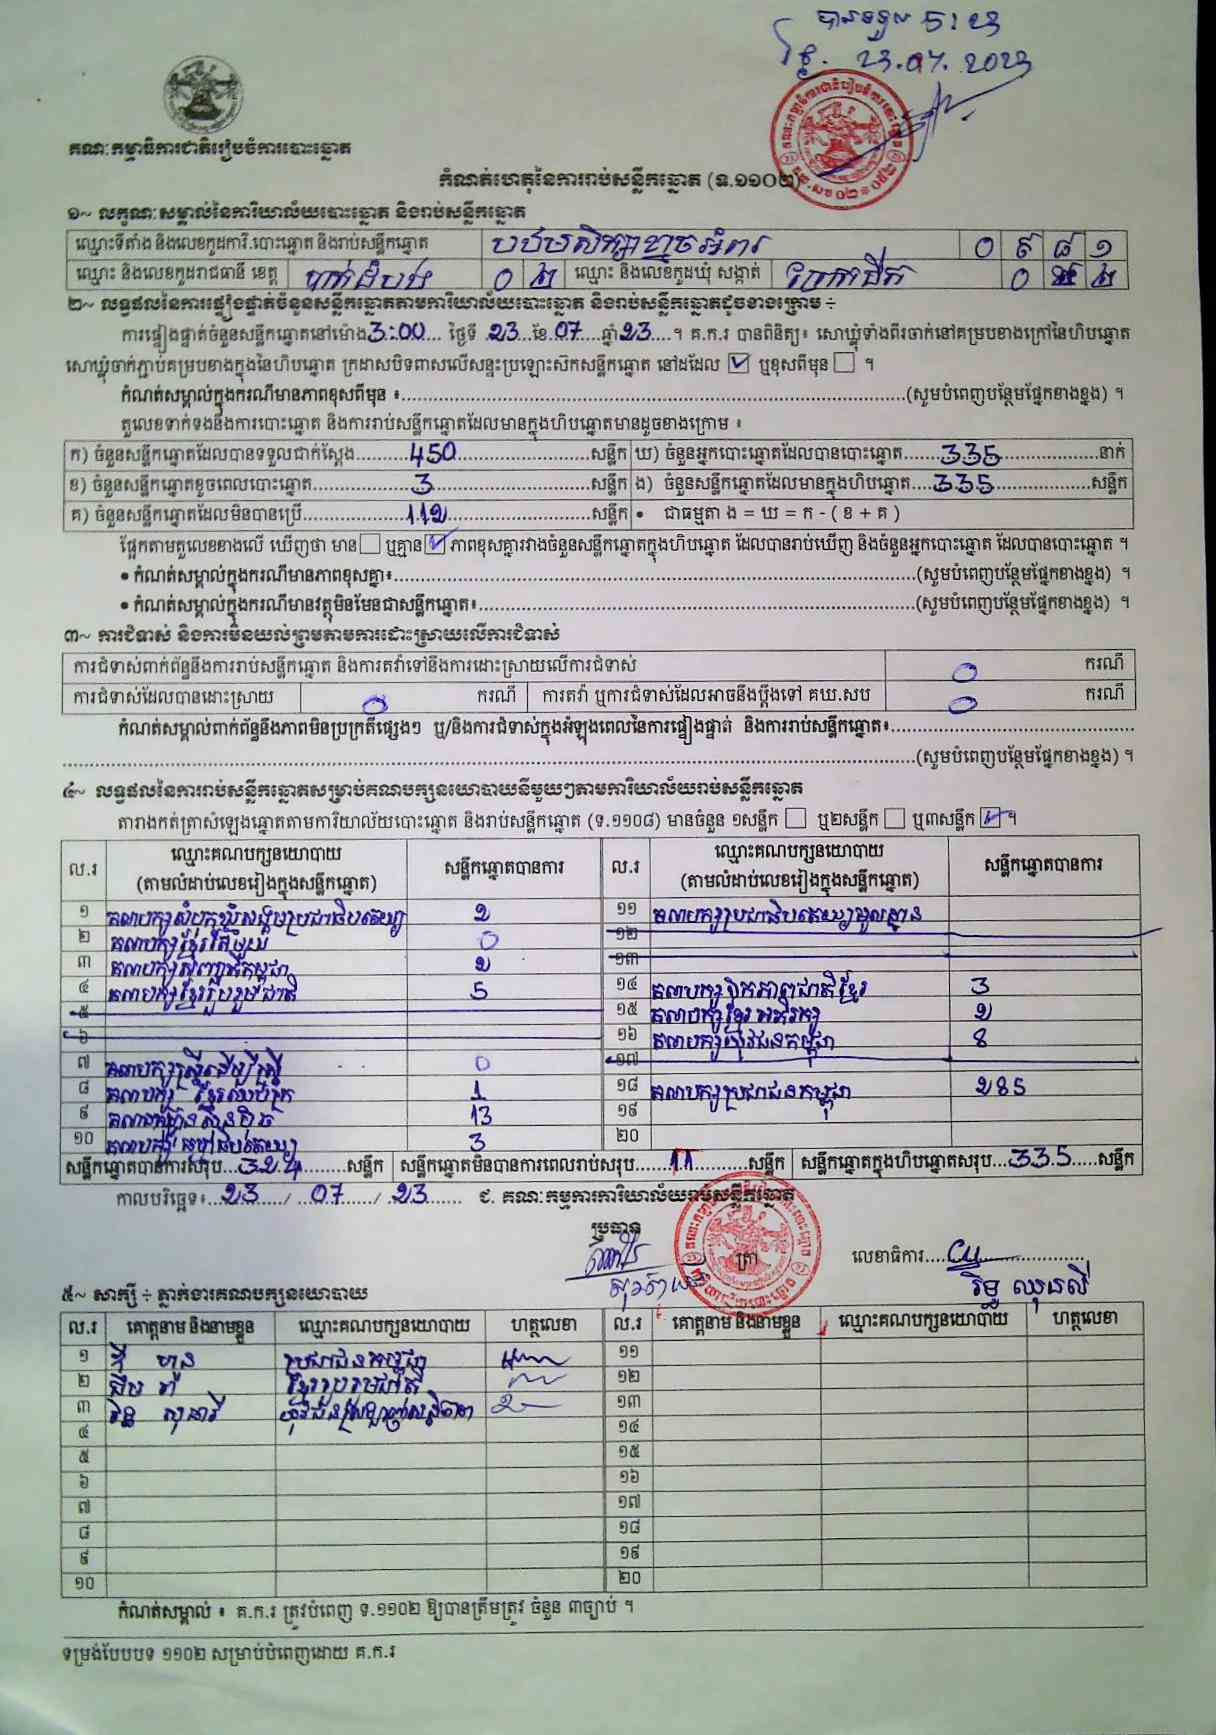 បានទទួល ៥:២៧
ថ្ងៃ. 23.07. 2023
គណៈកម្មាធិការជាតិរៀបចំការបោះឆ្នោត
កំណត់ហេតុនៃការរាប់សន្លឹកឆ្នោត (ទ.១១០២)
១~ លក្ខណៈសម្គាល់នៃការិយាល័យបោះឆ្នោត និងរាប់សន្លឹកឆ្នោត
ឈ្មោះទីតាំង និងលេខកូដការិ.បោះឆ្នោត និងរាប់សន្លឹកឆ្នោត បឋមសិក្សាខ្នាចអំពារ ០ ៩ ៨ ១
ឈ្មោះ និងលេខកូដរាជធានី ខេត្ត បាត់ដំបង ០ ២ ឈ្មោះ និងលេខកូដឃុំ សង្កាត់ ០ ២
២~ លទ្ធផលនៃការផ្ទៀងផ្ទាត់ចំនួនសន្លឹកឆ្នោតតាមការិយាល័យបោះឆ្នោត និងរាប់សន្លឹកឆ្នោតដូចខាងក្រោម ÷
ការផ្ទៀងផ្ទាត់ចំនួនសន្លឹកឆ្នោតនៅម៉ោង 3:00 ថ្ងៃទី 23 ខែ 07 ឆ្នាំ 23 ។ គ.ក.រ បានពិនិត្យ៖ សោឃ្លុំទាំងពីរចាក់នៅគម្របខាងក្រៅនៃហិបឆ្នោត
សោឃ្លុំចាក់ភ្ជាប់គម្របខាងក្នុងនៃហិបឆ្នោត ក្រដាសបិទពាសលើសន្ទះប្រឡោះស៊កសន្លឹកឆ្នោត នៅដដែល ☑ ឬខុសពីមុន ☐ ។
កំណត់សម្គាល់ក្នុងករណីមានភាពខុសពីមុន ៖......(សូមបំពេញបន្ថែមផ្នែកខាងខ្នង) ។
តួលេខទាក់ទងនឹងការបោះឆ្នោត និងការរាប់សន្លឹកឆ្នោតដែលមានក្នុងហិបឆ្នោតមានដូចខាងក្រោម ៖
ក) ចំនួនសន្លឹកឆ្នោតដែលបានទទួលជាក់ស្តែង 450 សន្លឹក ឃ) ចំនួនអ្នកបោះឆ្នោតដែលបានបោះឆ្នោត 335 នាក់
ខ) ចំនួនសន្លឹកឆ្នោតខូចពេលបោះឆ្នោត 3 សន្លឹក ង) ចំនួនសន្លឹកឆ្នោតដែលមានក្នុងហិបឆ្នោត 335 សន្លឹក
គ) ចំនួនសន្លឹកឆ្នោតដែលមិនបានប្រើ 112 សន្លឹក • ជាធម្មតា ង = ឃ = ក - ( ខ + គ )
ផ្អែកតាមតួលេខខាងលើ ឃើញថា មាន ☐ ឬគ្មាន ☑ ភាពខុសគ្នារវាងចំនួនសន្លឹកឆ្នោតក្នុងហិបឆ្នោត ដែលបានរាប់ឃើញ និងចំនួនអ្នកបោះឆ្នោត ដែលបានបោះឆ្នោត ។
• កំណត់សម្គាល់ក្នុងករណីមានភាពខុសគ្នា៖......(សូមបំពេញបន្ថែមផ្នែកខាងខ្នង) ។
• កំណត់សម្គាល់ក្នុងករណីមានវត្ថុមិនមែនជាសន្លឹកឆ្នោត៖......(សូមបំពេញបន្ថែមផ្នែកខាងខ្នង) ។
៣~ ការជំទាស់ និងការមិនយល់ព្រមតាមការដោះស្រាយលើការជំទាស់
ការជំទាស់ពាក់ព័ន្ធនឹងការរាប់សន្លឹកឆ្នោត និងការតវ៉ាទៅនឹងការដោះស្រាយលើការជំទាស់ 0 ករណី
ការជំទាស់ដែលបានដោះស្រាយ 0 ករណី ការតវ៉ា ឬការជំទាស់ដែលអាចនឹងប្តឹងទៅ គឃ.សប 0 ករណី
កំណត់សម្គាល់ពាក់ព័ន្ធនឹងភាពមិនប្រក្រតីផ្សេងៗ ឬ/និងការជំទាស់ក្នុងអំឡុងពេលនៃការផ្ទៀងផ្ទាត់ និងការរាប់សន្លឹកឆ្នោត៖......
......(សូមបំពេញបន្ថែមផ្នែកខាងខ្នង) ។
៤~ លទ្ធផលនៃការរាប់សន្លឹកឆ្នោតសម្រាប់គណបក្សនយោបាយនីមួយៗតាមការិយាល័យរាប់សន្លឹកឆ្នោត
តារាងកត់ត្រាសំឡេងឆ្នោតតាមការិយាល័យបោះឆ្នោត និងរាប់សន្លឹកឆ្នោត (ទ.១១០៨) មានចំនួន ១សន្លឹក ☐ ឬ២សន្លឹក ☐ ឬ៣សន្លឹក ☑ ។
ល.រ ឈ្មោះគណបក្សនយោបាយ (តាមលំដាប់លេខរៀងក្នុងសន្លឹកឆ្នោត) សន្លឹកឆ្នោតបានការ ល.រ ឈ្មោះគណបក្សនយោបាយ (តាមលំដាប់លេខរៀងក្នុងសន្លឹកឆ្នោត) សន្លឹកឆ្នោតបានការ
១ គណបក្សសំបុកឃ្មុំសង្គមប្រជាធិបតេយ្យ 2 ១១ គណបក្សប្រជាធិបតេយ្យមូលដ្ឋាន
២ គណបក្សខ្មែរតែមួយ 0 ១២
៣ គណបក្សសញ្ជាតិកម្ពុជា 2 ១៣
៤ គណបក្សខ្មែររួបរួមជាតិ 5 ១៤ គណបក្សឯកភាពជាតិខ្មែរ 3
៥ ១៥ គណបក្សខ្មែរអភិរក្ស 2
៦ ១៦ គណបក្សយុវជនកម្ពុជា 8
៧ គណបក្សស្ត្រីដើម្បីស្ត្រី 0 ១៧
៨ គណបក្សខ្មែរឈប់ក្រ 1 ១៨ គណបក្សប្រជាជនកម្ពុជា 285
៩ គណបក្សហ៊្វុនស៊ិនប៉ិច 13 ១៩
១០ គណបក្សធម្មាធិបតេយ្យ 3 ២០
សន្លឹកឆ្នោតបានការសរុប 324 សន្លឹក សន្លឹកឆ្នោតមិនបានការពេលរាប់សរុប 11 សន្លឹក សន្លឹកឆ្នោតក្នុងហិបឆ្នោតសរុប 335 សន្លឹក
កាលបរិច្ឆេទ៖ 23 / 07 / 23 ជ. គណៈកម្មការការិយាល័យរាប់សន្លឹកឆ្នោត
ប្រធាន
ត្រា លេខាធិការ
រិទ្ធ ឈុនលី
៥~ សាក្សី ÷ ភ្នាក់ងារគណបក្សនយោបាយ
ល.រ គោត្តនាម និងនាមខ្លួន ឈ្មោះគណបក្សនយោបាយ ហត្ថលេខា ល.រ គោត្តនាម និងនាមខ្លួន ឈ្មោះគណបក្សនយោបាយ ហត្ថលេខា
១ ប្រជាជនកម្ពុជា ១១
២ ខ្មែររួបរួមជាតិ ១២
៣ ១៣
៤ ១៤
៥ ១៥
៦ ១៦
៧ ១៧
៨ ១៨
៩ ១៩
១០ ២០
កំណត់សម្គាល់ ៖ គ.ក.រ ត្រូវបំពេញ ទ.១១០២ ឱ្យបានត្រឹមត្រូវ ចំនួន ៣ច្បាប់ ។
ទម្រង់បែបបទ ១១០២ សម្រាប់បំពេញដោយ គ.ក.រ